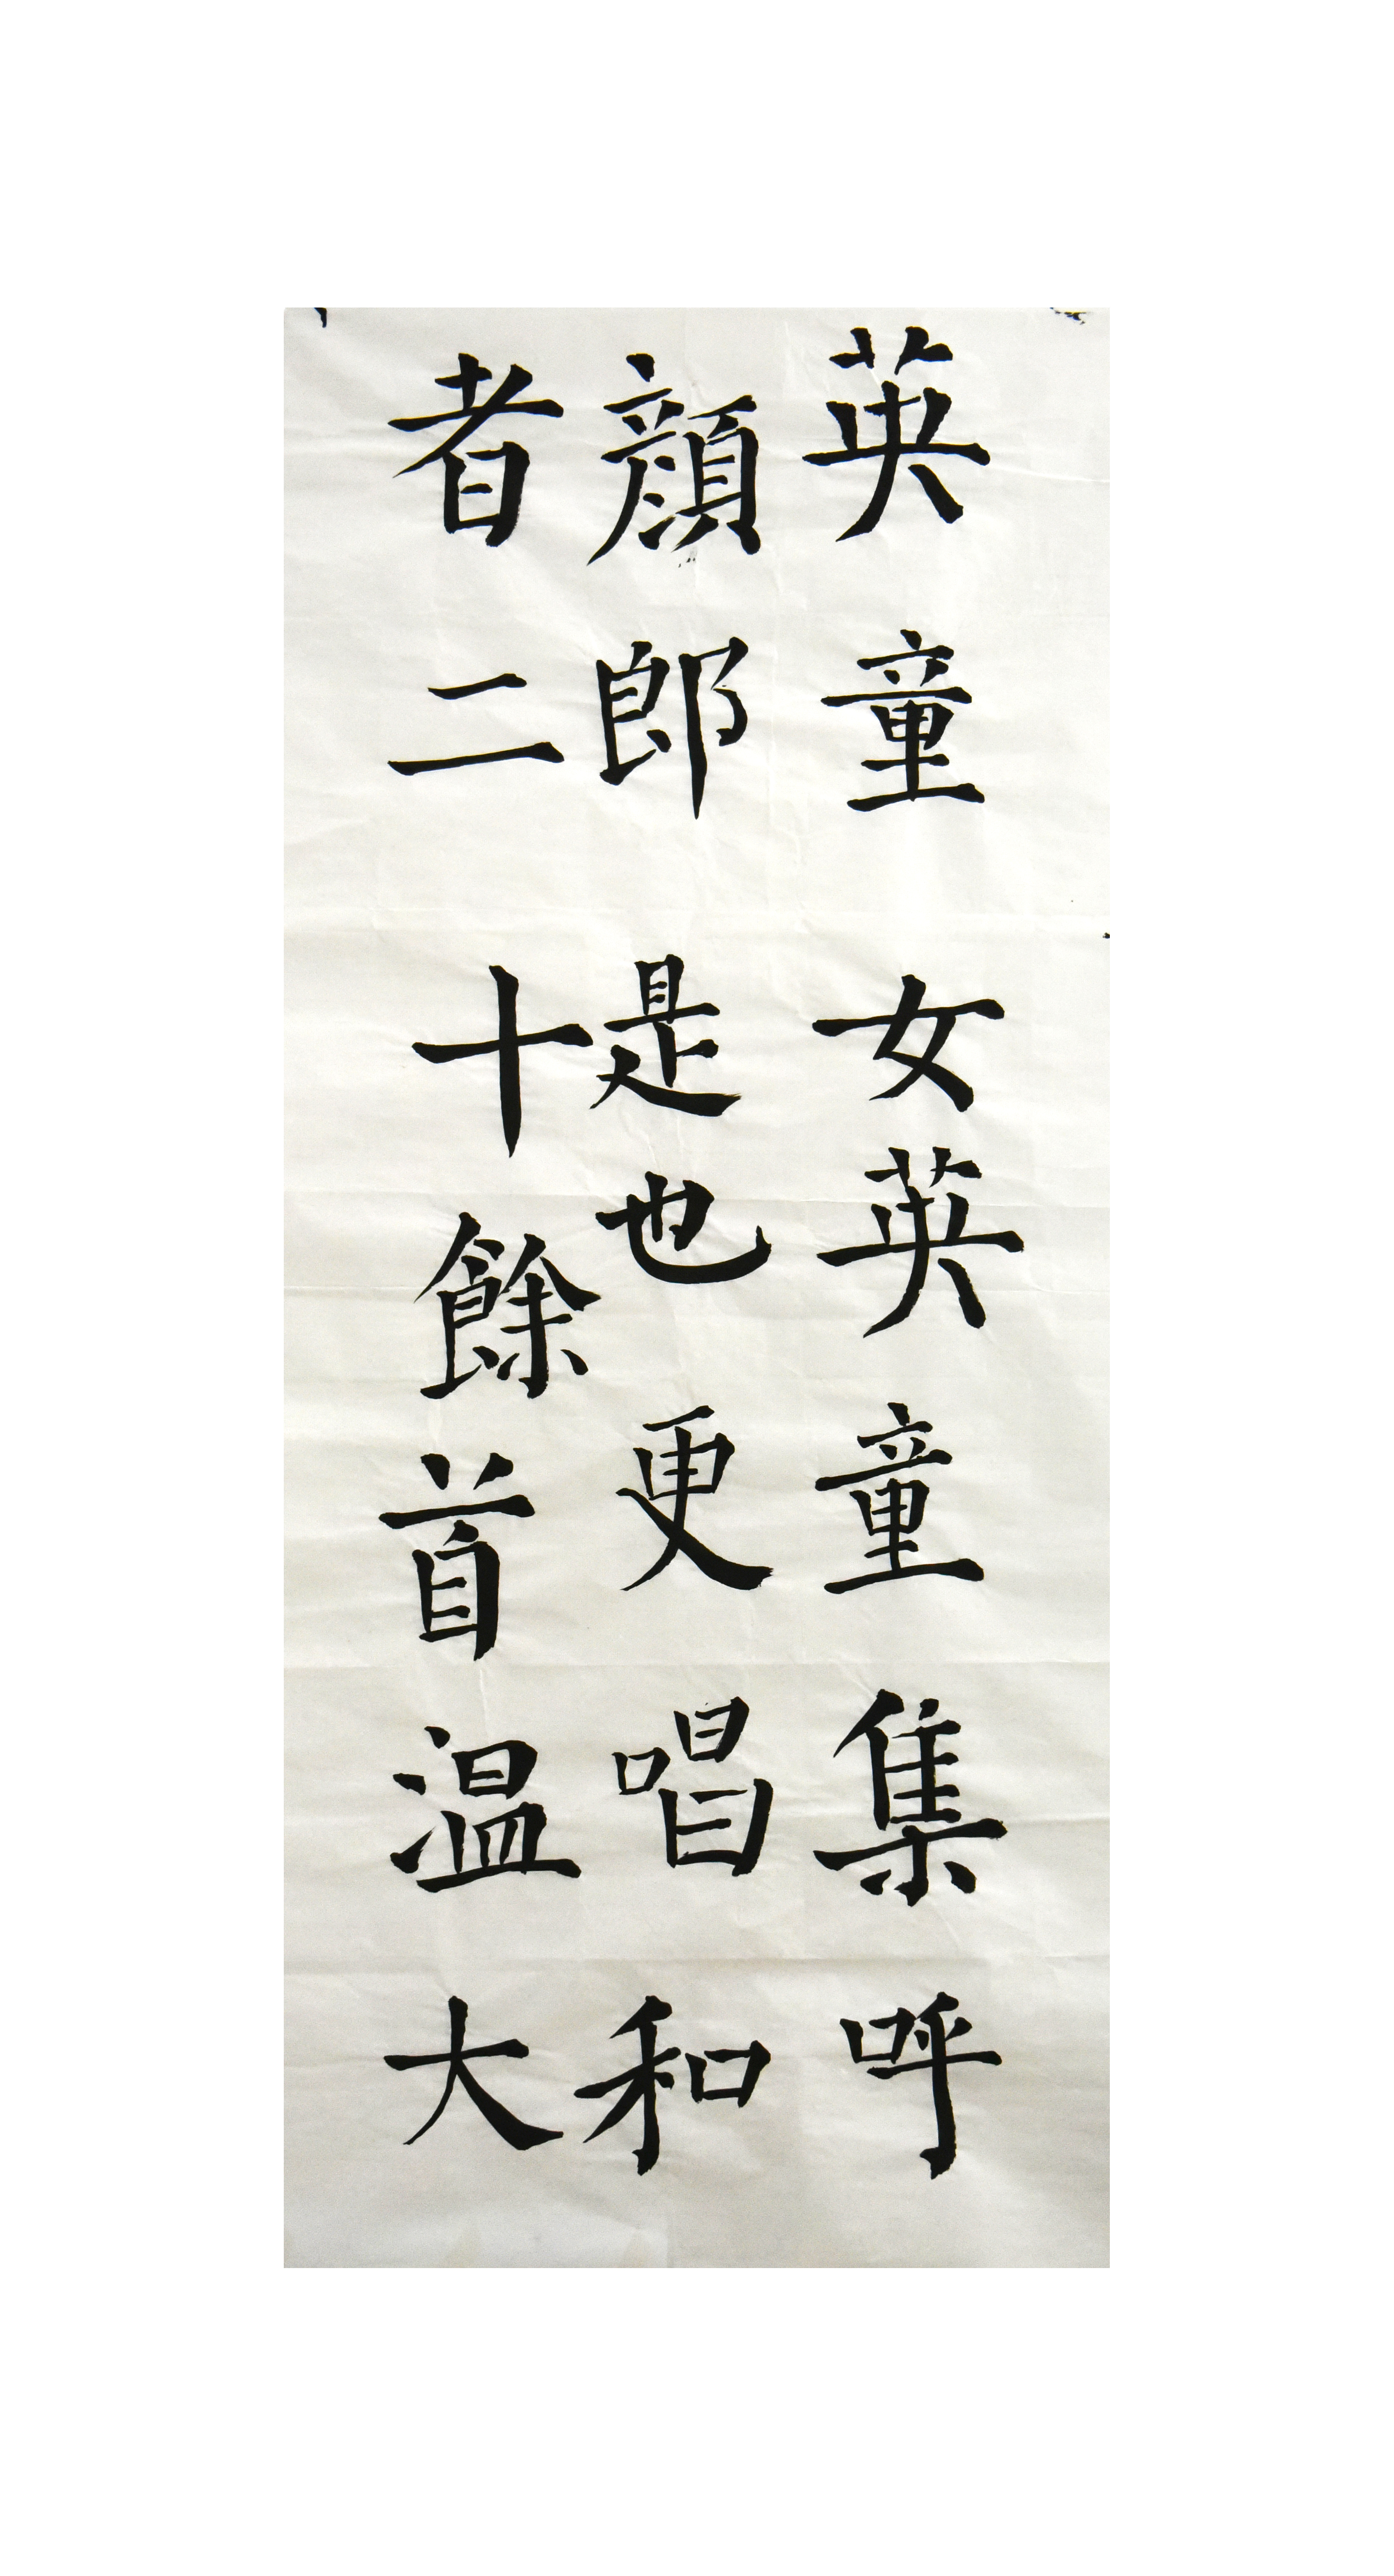 英童女英童集呼
顔郎是也更唱和
者二十餘首温大